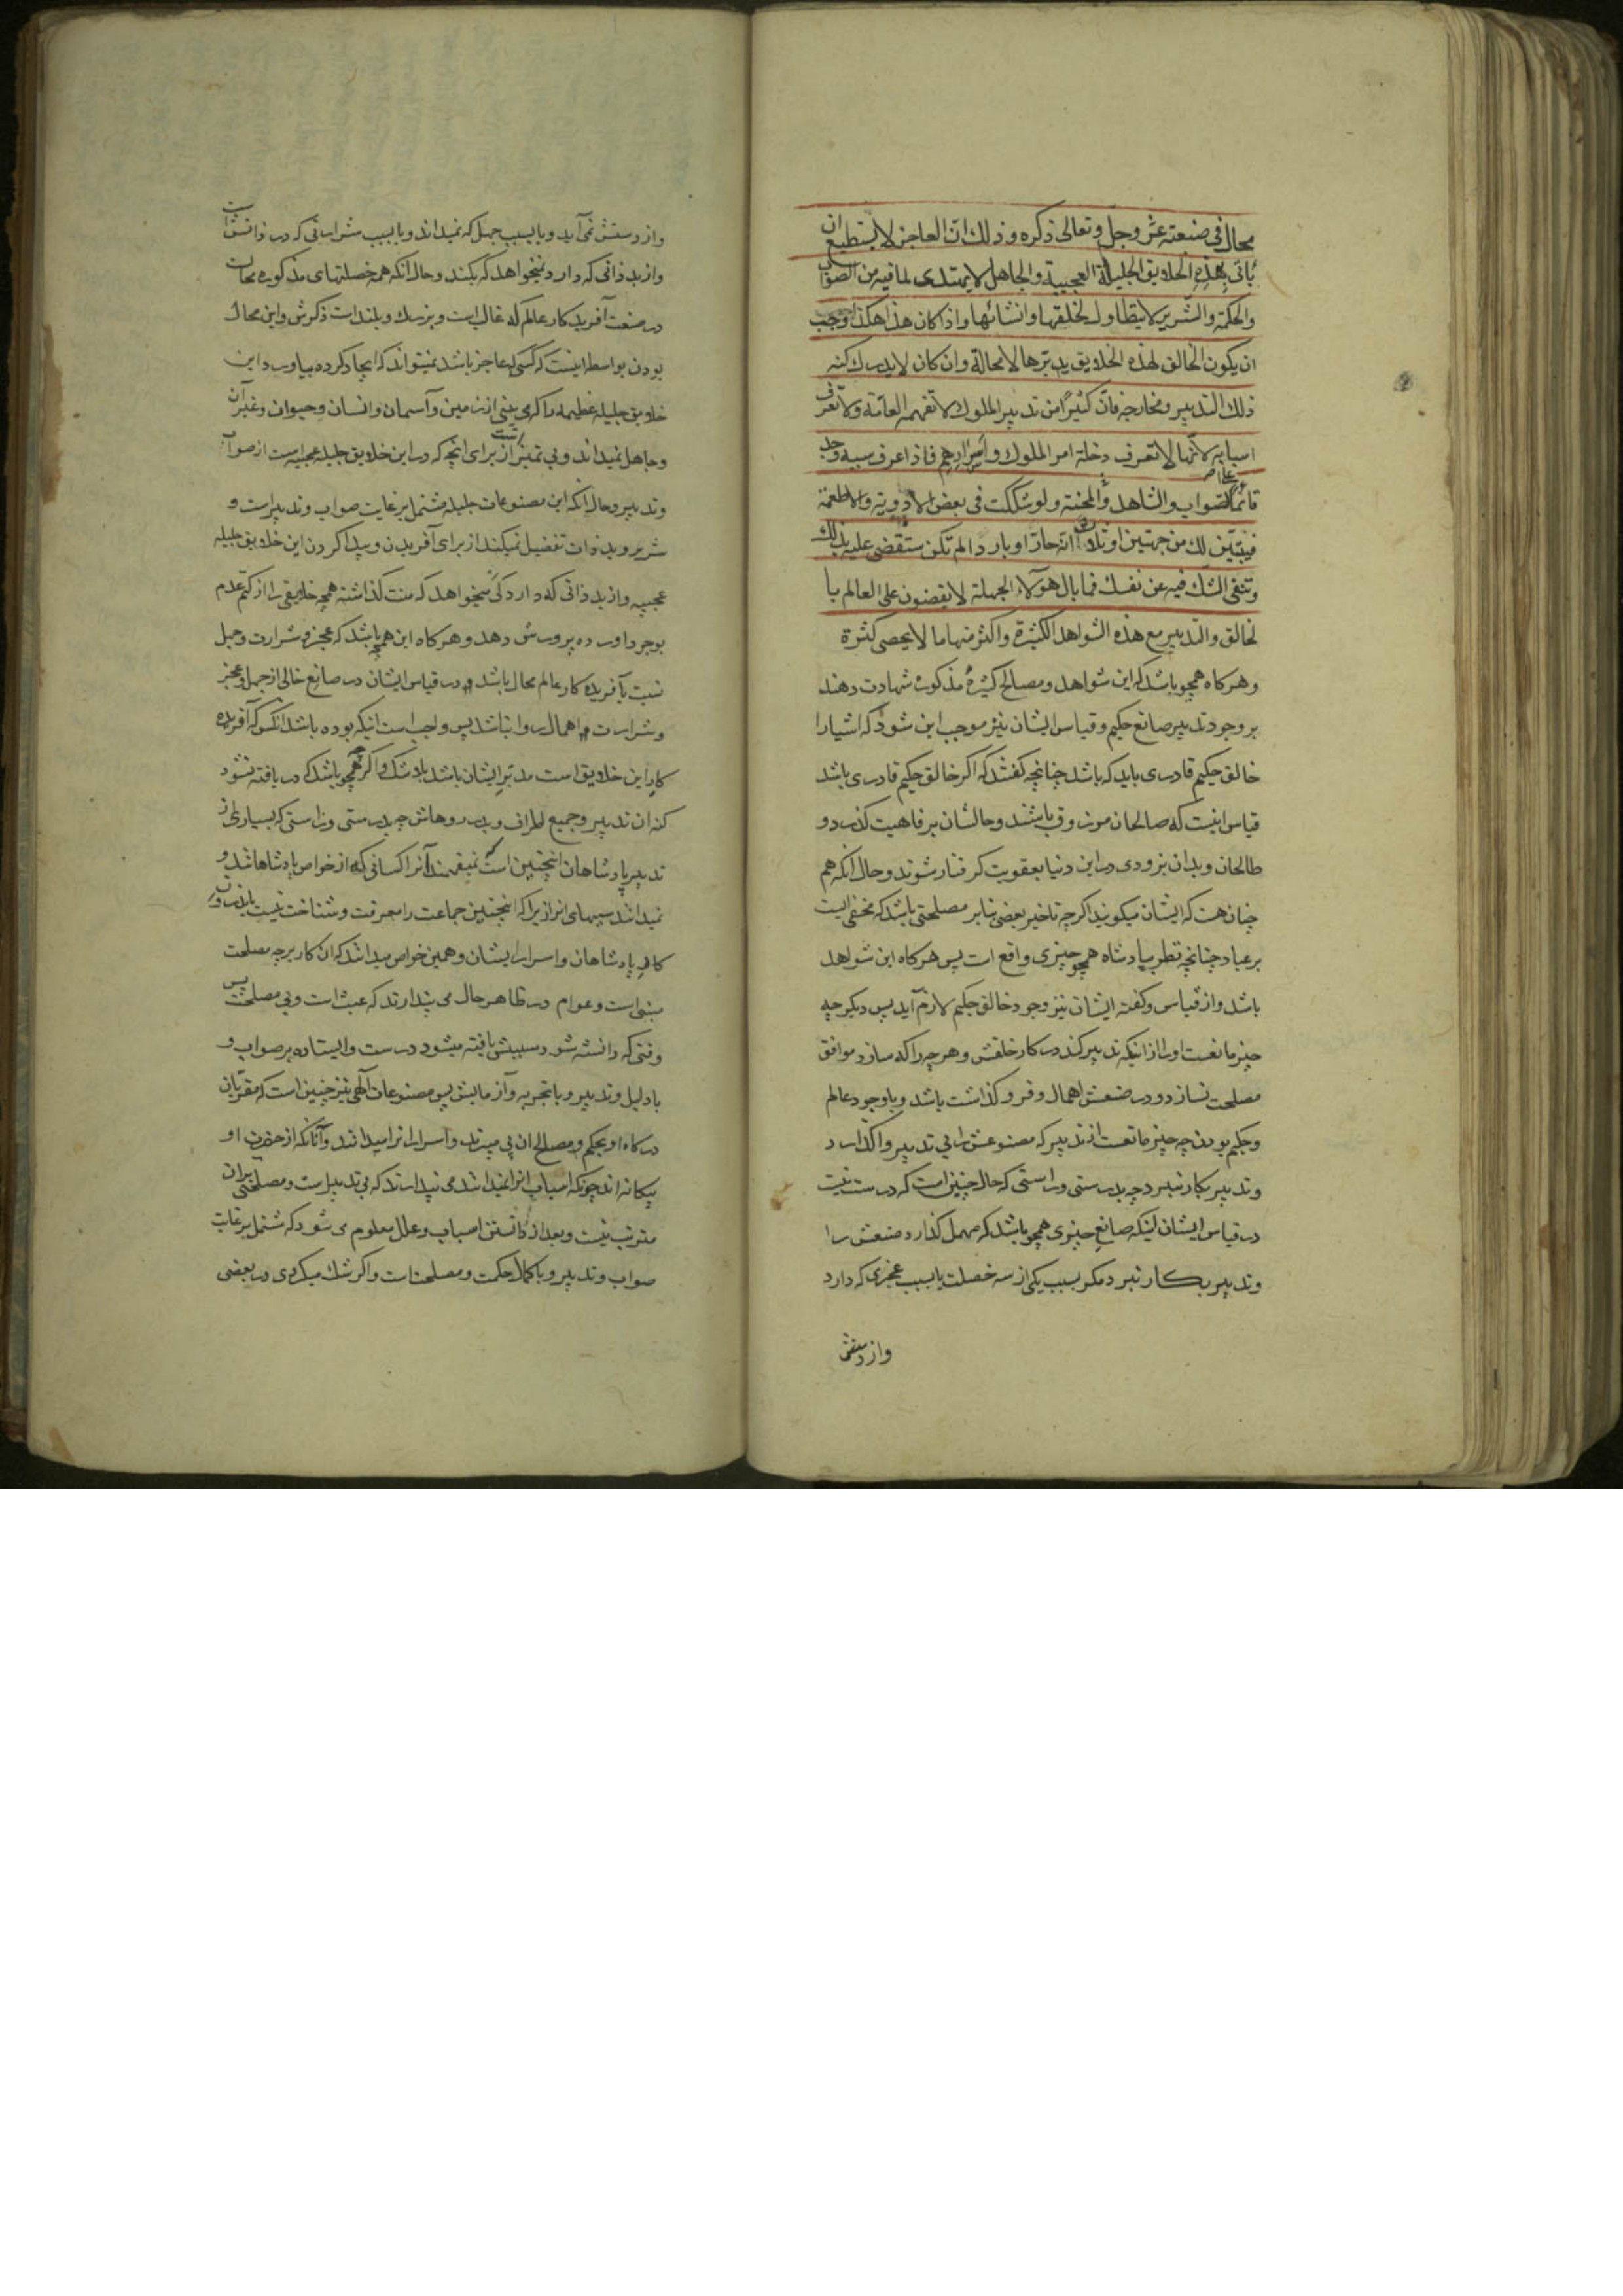 محال فی صنعته عزّ وجل وتعالی ذکره وذلک انّ العاجز لا یستطیع ان
یاتی بهذه الخلایق الجلیلة العجیبة والجاهل لا یهتدی لما فیه من الصواب
والحکمة والشّریر لا یتطاول لخلقها وانشائها واذا کان هذا هکذا وجب
ان یکون الخالق لهذه الخلایق یدبّرها لا محالة وان کان لا یدرک کنه
ذلک التدبیر ومخارجه فانّ کثیرًا من تدبیر الملوک لا تفهمه العامّة ولا تعرف
اسبابه لانّها لا تعرف دخلة امر الملوک واسرارهم فاذا عرف سببه وجد
قائمًا علی الصواب والشاهد والمحنة ولو شککت فی بعض الادویة والاطعمة
فیتبیّن لک من جهتین او ثلاث انّه حارّ او بارد الم تکن ستقضی علیه بذلک
وتنفی الشک فیه عن نفسک فما بال هؤلاء الجهلة لا یقضون علی العالم با
لخالق والتدبیر مع هذه الشواهد الکثیرة واکثر منها ما لا یحصی کثرة
وهرکاه همچو باشد که این شواهد ومصالح کثیرهٔ مذکوره شهادت دهند
بر وجود تدبیر صانع حکیم وقیاس ایشان نیز موجب این شود که اشیارا
خالق حکیم قادری باید که باشد چنانچه کفتند که اکر خالق حکیم قادری باشد
قیاس اینست که صالحان مرزوق باشند وحالشان برفاهیت کذرد و
طالحان وبدان بزودی در این دنیا بعقوبت کرفتار شوند وحال آنکه هم
چنان هست که ایشان میکویند اکرچه تاخیر بعضی بنابر مصلحتی باشد که مخفی است
بر عباد چنانچه نظر بپادشاه همچو چیزی واقع است پس هرکاه این شواهد
باشد واز قیاس وکفته ایشان نیز وجود خالق حکیم لازم آید پس دیکر چه
چیز مانعست اورا از اینکه تدبیر کند در کار خلقش وهر چه را که سازد موافق
مصلحت نسازد ودر صنعش اهمال وفرو کذاشت باشد وباوجود عالم
وحکیم بودن چه چیز مانعست از تدبیر که مصنوعش را بی تدبیر واکذارد
وتدبیر بکار نبرد چه بدرستی وراستی که حال چنین است که درست نیست
در قیاس ایشان اینکه صانع چیزی همچو باشد که مهمل کذارد صنعش را
وتدبیر بکار نبرد مکر بسبب یکی از سه خصلت یا بسبب عجزی که دارد
واز دستش
واز دستش نمی آید ویا بسبب جهل که نمیداند ویا بسبب شرارتی که در ذاتش است
واز بد ذاتی که دارد نمیخواهد که بکند وحال آنکه همه خصلتهای مذکوره محالست
در صنعت آفریدکار عالم که غالب است وبزرک وبلند است ذکرش واین محال
بودن بواسطه اینست که کسی که عاجز باشد نمیتواند که ایجاد کرده بیاورد این
خلایق جلیله عظیمه را که می بینی از زمین وآسمان وانسان وحیوان وغیر آن
وجاهل نمیداند وبی تمیز است از برای آنچه که در این خلایق جلیله عجیبه است از صواب
وتدبیر وحال آنکه این مصنوعات جلیله مشتمل بر غایت صواب وتدبیر است و
شریر وبد ذات تفضیل نمیکند از برای آفریدن وپیدا کردن این خلایق جلیله
عجیبه واز بد ذاتی که دارد کی میخواهد که منت کذاشته همچه خلایقی را از کتم عدم
بوجود آورده پرورش دهد وهرکاه این همچه باشد که عجز وشرارت وجهل
نسبت بآفریدکار عالم محال باشد ودر قیاس ایشان در صانع خالی از جهل وعجز
وشرارت اهمال روا نباشد پس واجب است اینکه بوده باشد آنکس که آفریده
کار این خلایق است مدبّر ایشان باشد بلا شک واکر همچو باشد که دریافته نشود
کنه ان تدبیر وجمیع اطراف وبدر روهاش چه بدرستی وراستی که بسیاری از
تدبیر پادشاهان اینچنین است که نمیفهمند آنرا کسانی که از خواص پادشاهانند و
نمیدانند سببهای انرا زیرا که اینچنین جماعت را معرفت وشناخت نیست باندرون
کار پادشاهان واسرار ایشان وهمین خواص میدانند که ان کار بر چه مصلحت
مبنی است وعوام در ظاهر حال می پندارند که عبث است وبی مصلحت پس
وقتی که دانسته شود سببش یافته میشود درست وایستاده بر صواب و
بادلیل وتدبیر وباتجربه وآزمایش پس مصنوعات الهی نیز چنین است که مقرّبان
درکاه او بحکم ومصالح ان پی میبرند واسرار انرا میدانند وآنانکه از حضرت او
بیکانه اند چونکه اسباب انرا نمیدانند می پندارند که بی تدبیر است ومصلحتی بران
مترتب نیست وبعد از دانستن اسباب وعلل معلوم می شود که مشتمل بر غایت
صواب وتدبیر وباکمال حکمت ومصلحت است واکر شک میکردی در بعضی